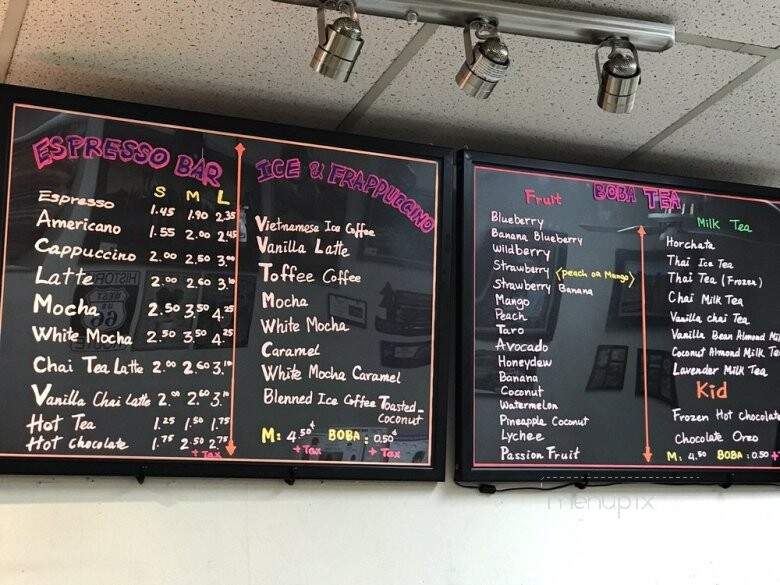 ESPRESSO BAR
S M L
Espresso 1.45 1.90 2.35
Americano 1.55 2.00 2.45
Cappuccino 2.00 2.50 3.00
Latte 2.00 2.60 3.10
Mocha 2.50 3.50 4.25
White Mocha 2.50 3.50 4.25
Chai Tea Latte 2.00 2.60 3.10
Vanilla Chai Latte 2.00 2.60 3.10
Hot Tea 1.25 1.50 1.75
Hot Chocolate 1.75 2.50 2.75
+ Tax
ICE & FRAPPUCCINO
Vietnamese Ice Coffee
Vanilla Latte
Toffee Coffee
Mocha
White Mocha
Caramel
White Mocha Caramel
Blenned Ice Coffee Toasted-
Coconut
M: 4.50¢ BOBA: 0.50¢
+ Tax + Tax
BOBA TEA
Fruit
Blueberry
Banana Blueberry
Wildberry
Strawberry <peach or Mango>
Strawberry Banana
Mango
Peach
Taro
Avocado
Honeydew
Banana
Coconut
Watermelon
Pineapple Coconut
Lychee
Passion Fruit
Milk Tea
Horchata
Thai Ice Tea
Thai Tea (Frozen)
Chai Milk Tea
Vanilla Chai Tea
Vanilla Bean Almond Mi
Coconut Almond Milk Te
Lavender Milk Tea
Kid
Frozen Hot Chocolate
Chocolate Oreo
M: 4.50 BOBA: 0.50 +
menupix